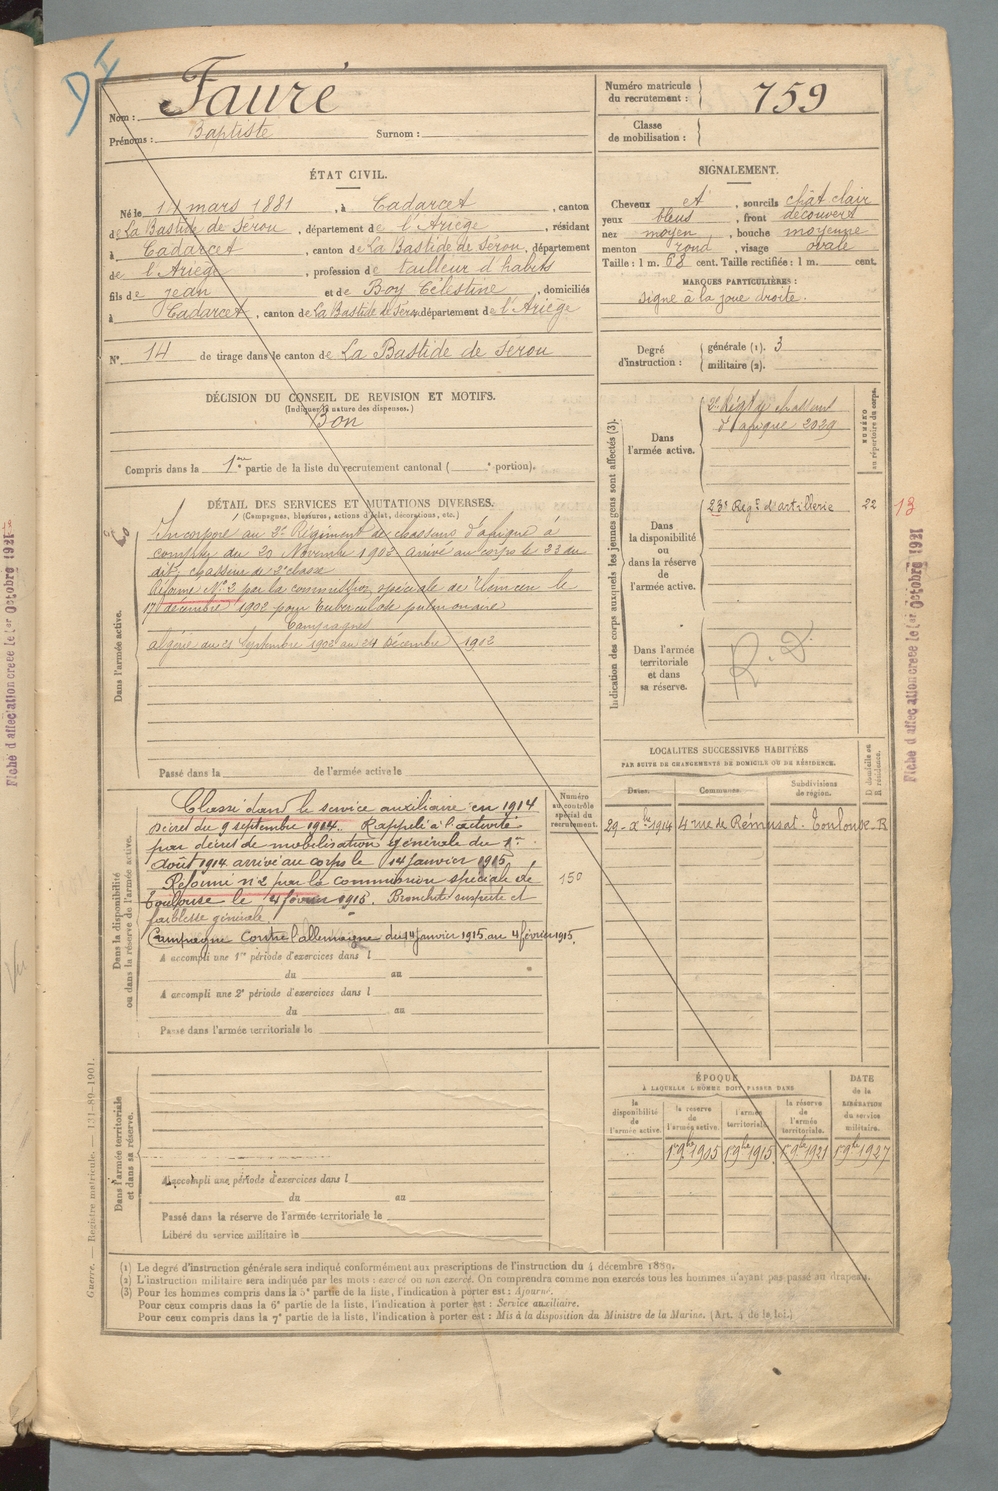 Nom : Fauré
Prénoms : Baptiste Surnom :
Numéro matricule du recrutement : 759
Classe de mobilisation :
ÉTAT CIVIL.
Né le 14 mars 1881, à Cadarcet, canton
de La Bastide de Sérou, département de l'Ariège, résidant
à Cadarcet, canton de La Bastide de Sérou, département
de l'Ariège, profession de tailleur d'habits
fils de Jean et de Boy Célestine, domiciliés
à Cadarcet, canton de La Bastide de Sérou département de l'Ariège
N° 14 de tirage dans le canton de La Bastide de Sérou
SIGNALEMENT.
Cheveux et, sourcils chât clair
yeux bleus, front découvert
nez moyen, bouche moyenne
menton rond, visage ovale
Taille : 1 m. 68 cent. Taille rectifiée : 1 m. cent.
MARQUES PARTICULIÈRES :
Signe à la joue droite.
Degré d'instruction : générale (1). 3
militaire (2).
DÉCISION DU CONSEIL DE REVISION ET MOTIFS.
(Indiquer la nature des dispenses.)
Bon
Compris dans la 1ère partie de la liste du recrutement cantonal ( e portion).
DÉTAIL DES SERVICES ET MUTATIONS DIVERSES.
(Campagnes, blessures, actions d'éclat, décorations, etc.)
Dans l'armée active.
Incorporé au 2e Régiment de chasseurs d'afrique à
compter du 20 Novembre 1902 arrivé au corps le 23 du
dit, chasseur de 2e classe
Réformé N° 2 par la commission spéciale de Tlemcen le
17 décembre 1902 pour tuberculose pulmonaire
Campagnes
Algérie du 21 Septembre 1902 au 24 Décembre 1902
Passé dans la de l'armée active le
Dans la disponibilité ou dans la réserve de l'armée active.
Numéro au contrôle spécial du recrutement.
150
Classé dans le service auxiliaire en 1914
Décret du 9 septembre 1914. Rappelé à l'activité
par décret de mobilisation générale du 1er
Août 1914 arrivé au corps le 14 janvier 1915
Réformé n° 2 par la commission spéciale de
Toulouse le 4 février 1915. Bronchite suspecte et
faiblesse générale.
Campagne contre l'allemagne du 14 janvier 1915 au 4 février 1915.
A accompli une 1re période d'exercices dans l
du au
A accompli une 2e période d'exercices dans l
du au
Passé dans l'armée territoriale le
Dans l'armée territoriale et dans sa réserve.
A accompli une période d'exercices dans l
du au
Passé dans la réserve de l'armée territoriale le
Libéré du service militaire le
Indication des corps auxquels les jeunes gens sont affectés (3).
NUMÉRO au répertoire du corps.
Dans l'armée active.
2e Régt de chasseurs
d'afrique 2029
Dans la disponibilité ou dans la réserve de l'armée active.
23e Régt d'artillerie 22
13
Dans l'armée territoriale et dans sa réserve.
LOCALITÉS SUCCESSIVES HABITÉES
PAR SUITE DE CHANGEMENTS DE DOMICILE OU DE RÉSIDENCE.
Dates. Communes. Subdivisions de région. D domicile ou R résidence.
29-Xbre 1914 4 rue de Rémusat. Toulouse-R
ÉPOQUE
À LAQUELLE L'HOMME DOIT PASSER DANS
la disponibilité de l'armée active.
la réserve de l'armée active.
l'armée territoriale.
la réserve de l'armée territoriale.
DATE de la LIBÉRATION du service militaire.
1er 9bre 1905 1er 9bre 1915 1er 9bre 1921 1er 9bre 1927
Guerre. — Registre matricule. — 131-89-1901.
Fiche d'affectation créée le 1er Octobre 1921
Fiche d'affectation créée le 1er Octobre 1921
(1) Le degré d'instruction générale sera indiqué conformément aux prescriptions de l'instruction du 4 décembre 1889.
(2) L'instruction militaire sera indiquée par les mots : exercé ou non exercé. On comprendra comme non exercés tous les hommes n'ayant pas passé au drapeau.
(3) Pour les hommes compris dans la 5e partie de la liste, l'indication à porter est : Ajourné.
Pour ceux compris dans la 6e partie de la liste, l'indication à porter est : Service auxiliaire.
Pour ceux compris dans la 7e partie de la liste, l'indication à porter est : Mis à la disposition du Ministre de la Marine. (Art. 4 de la loi.)